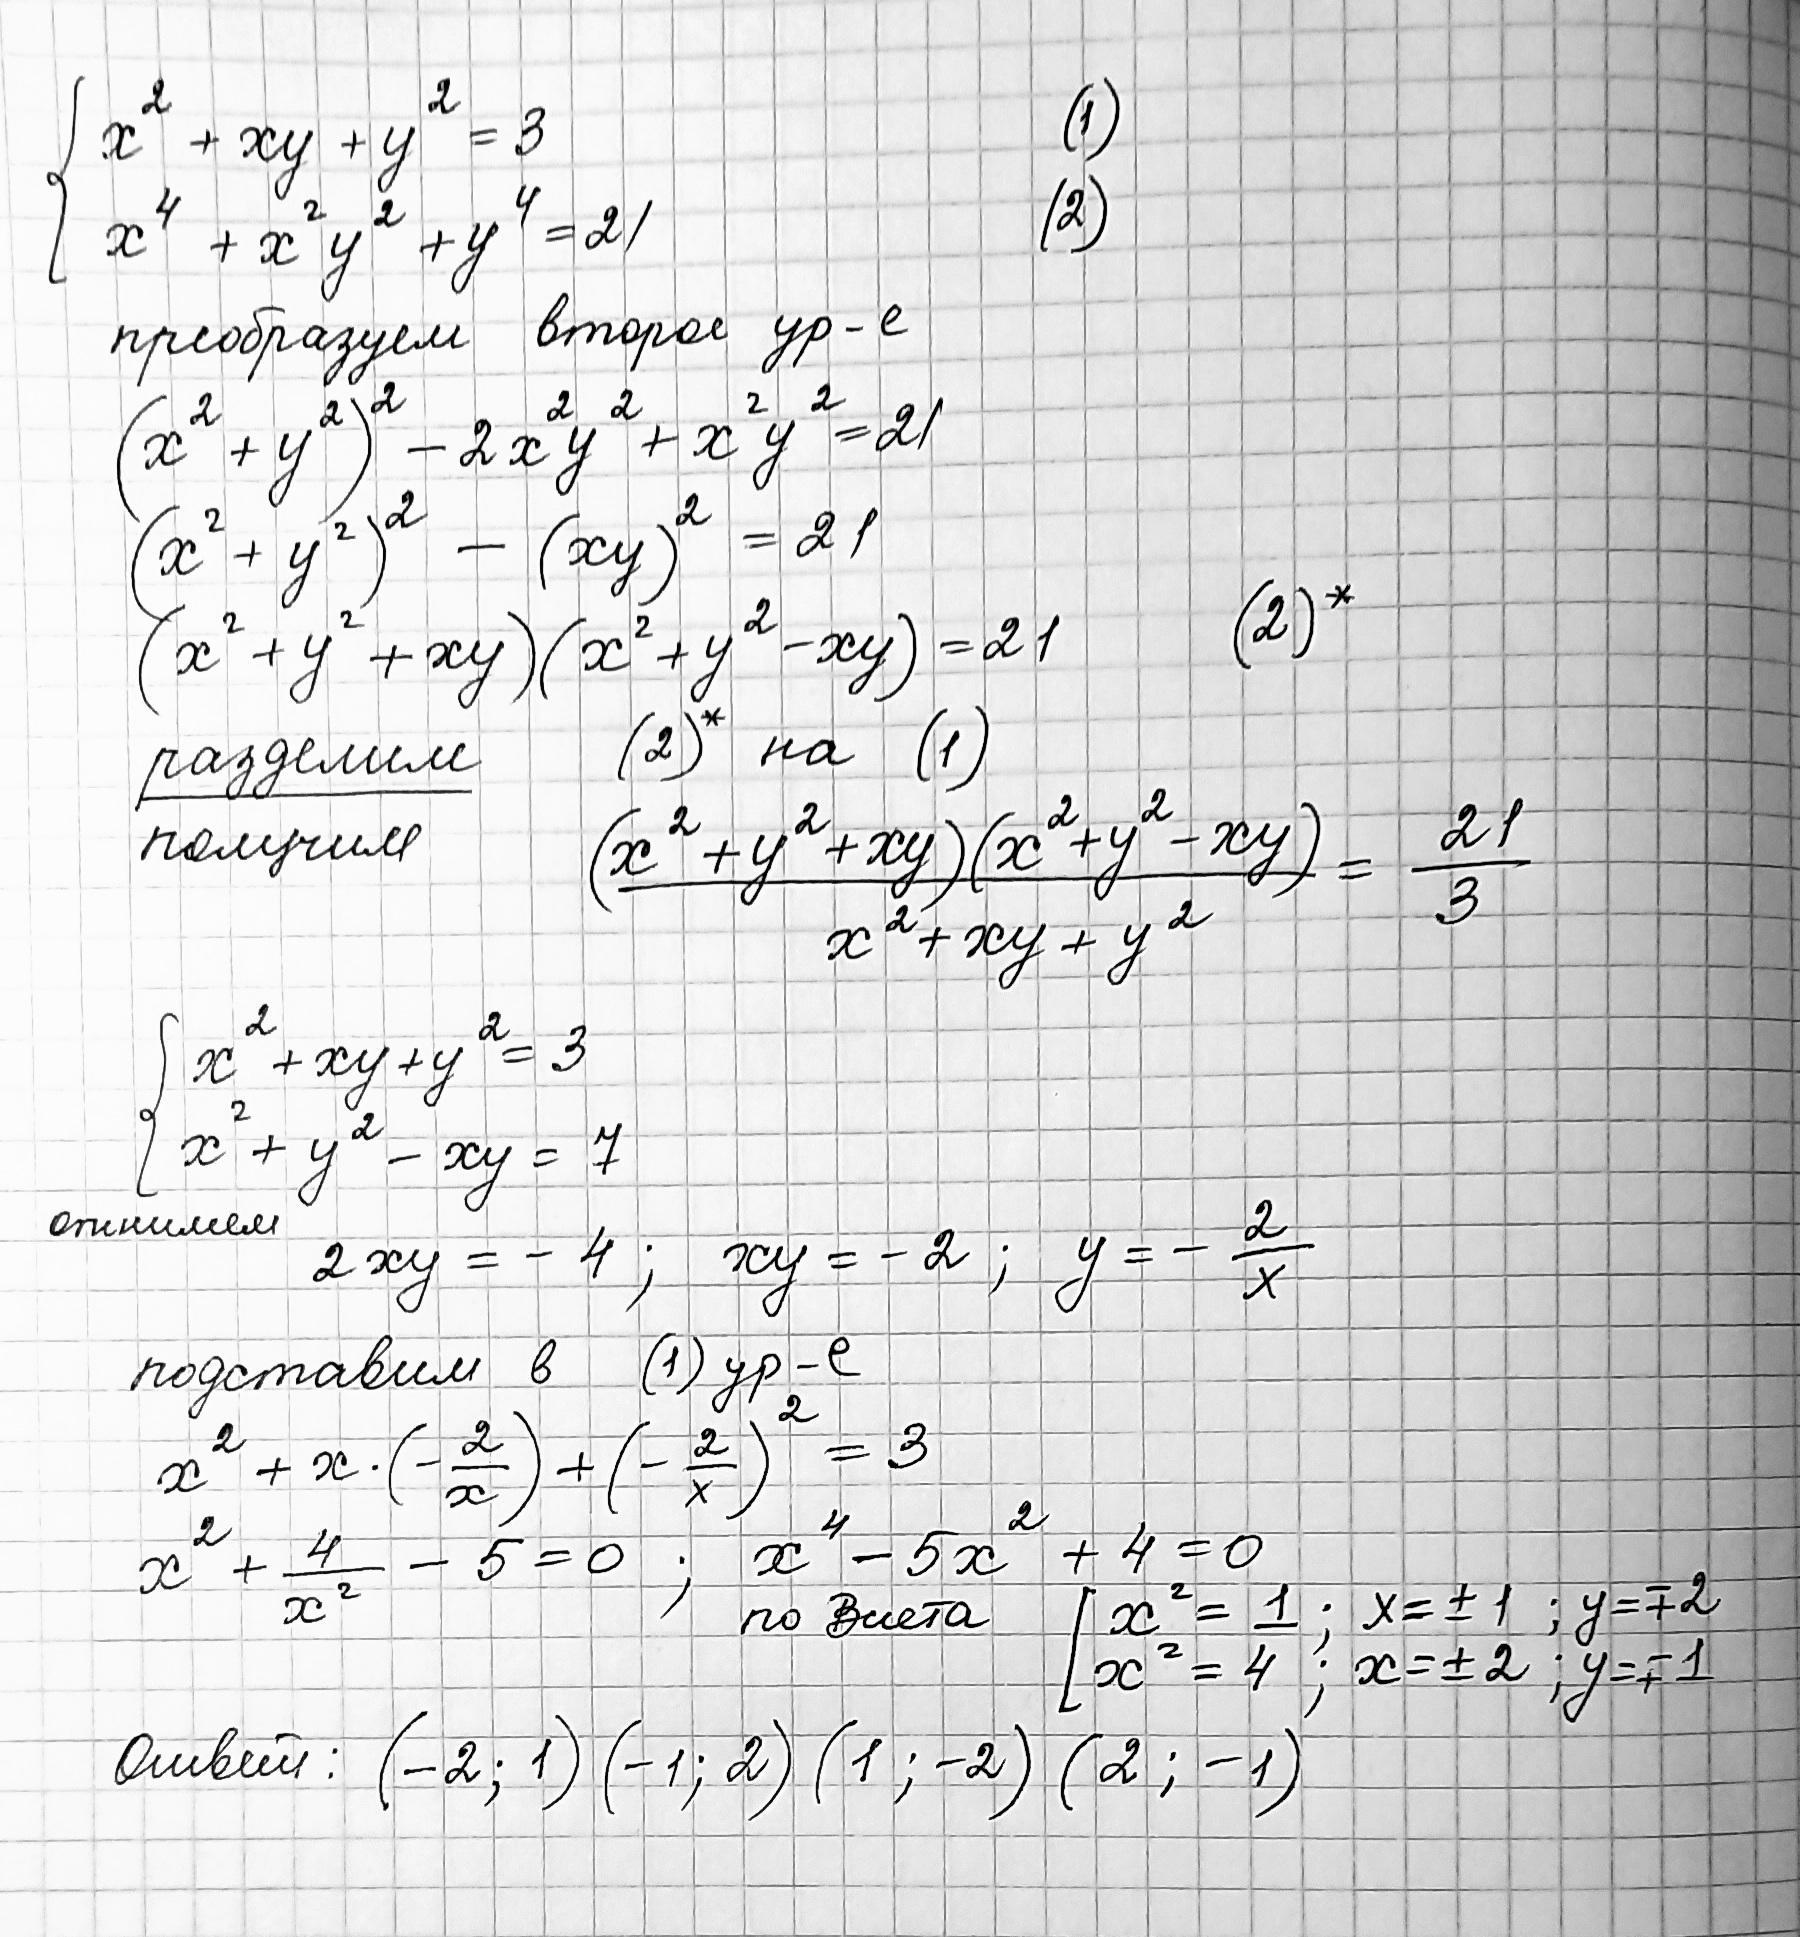 x² + xy + y² = 3 (1)
x⁴ + x²y² + y⁴ = 21 (2)
преобразуем второе ур-е
(x² + y²)² - 2x²y² + x²y² = 21
(x² + y²)² - (xy)² = 21
(x² + y² + xy)(x² + y² - xy) = 21 (2)*
разделим (2)* на (1)
получим (x² + y² + xy)(x² + y² - xy) / (x² + xy + y²) = 21/3
x² + xy + y² = 3
x² + y² - xy = 7
отнимем
2xy = -4 ; xy = -2 ; y = - 2/x
подставим в (1) ур-е
x² + x · (-2/x) + (-2/x)² = 3
x² + 4/x² - 5 = 0 ; x⁴ - 5x² + 4 = 0
по Виета [ x² = 1 ; x = ±1 ; y = ∓2
x² = 4 ; x = ±2 ; y = ∓1
Ответ: (-2; 1) (-1; 2) (1; -2) (2; -1)